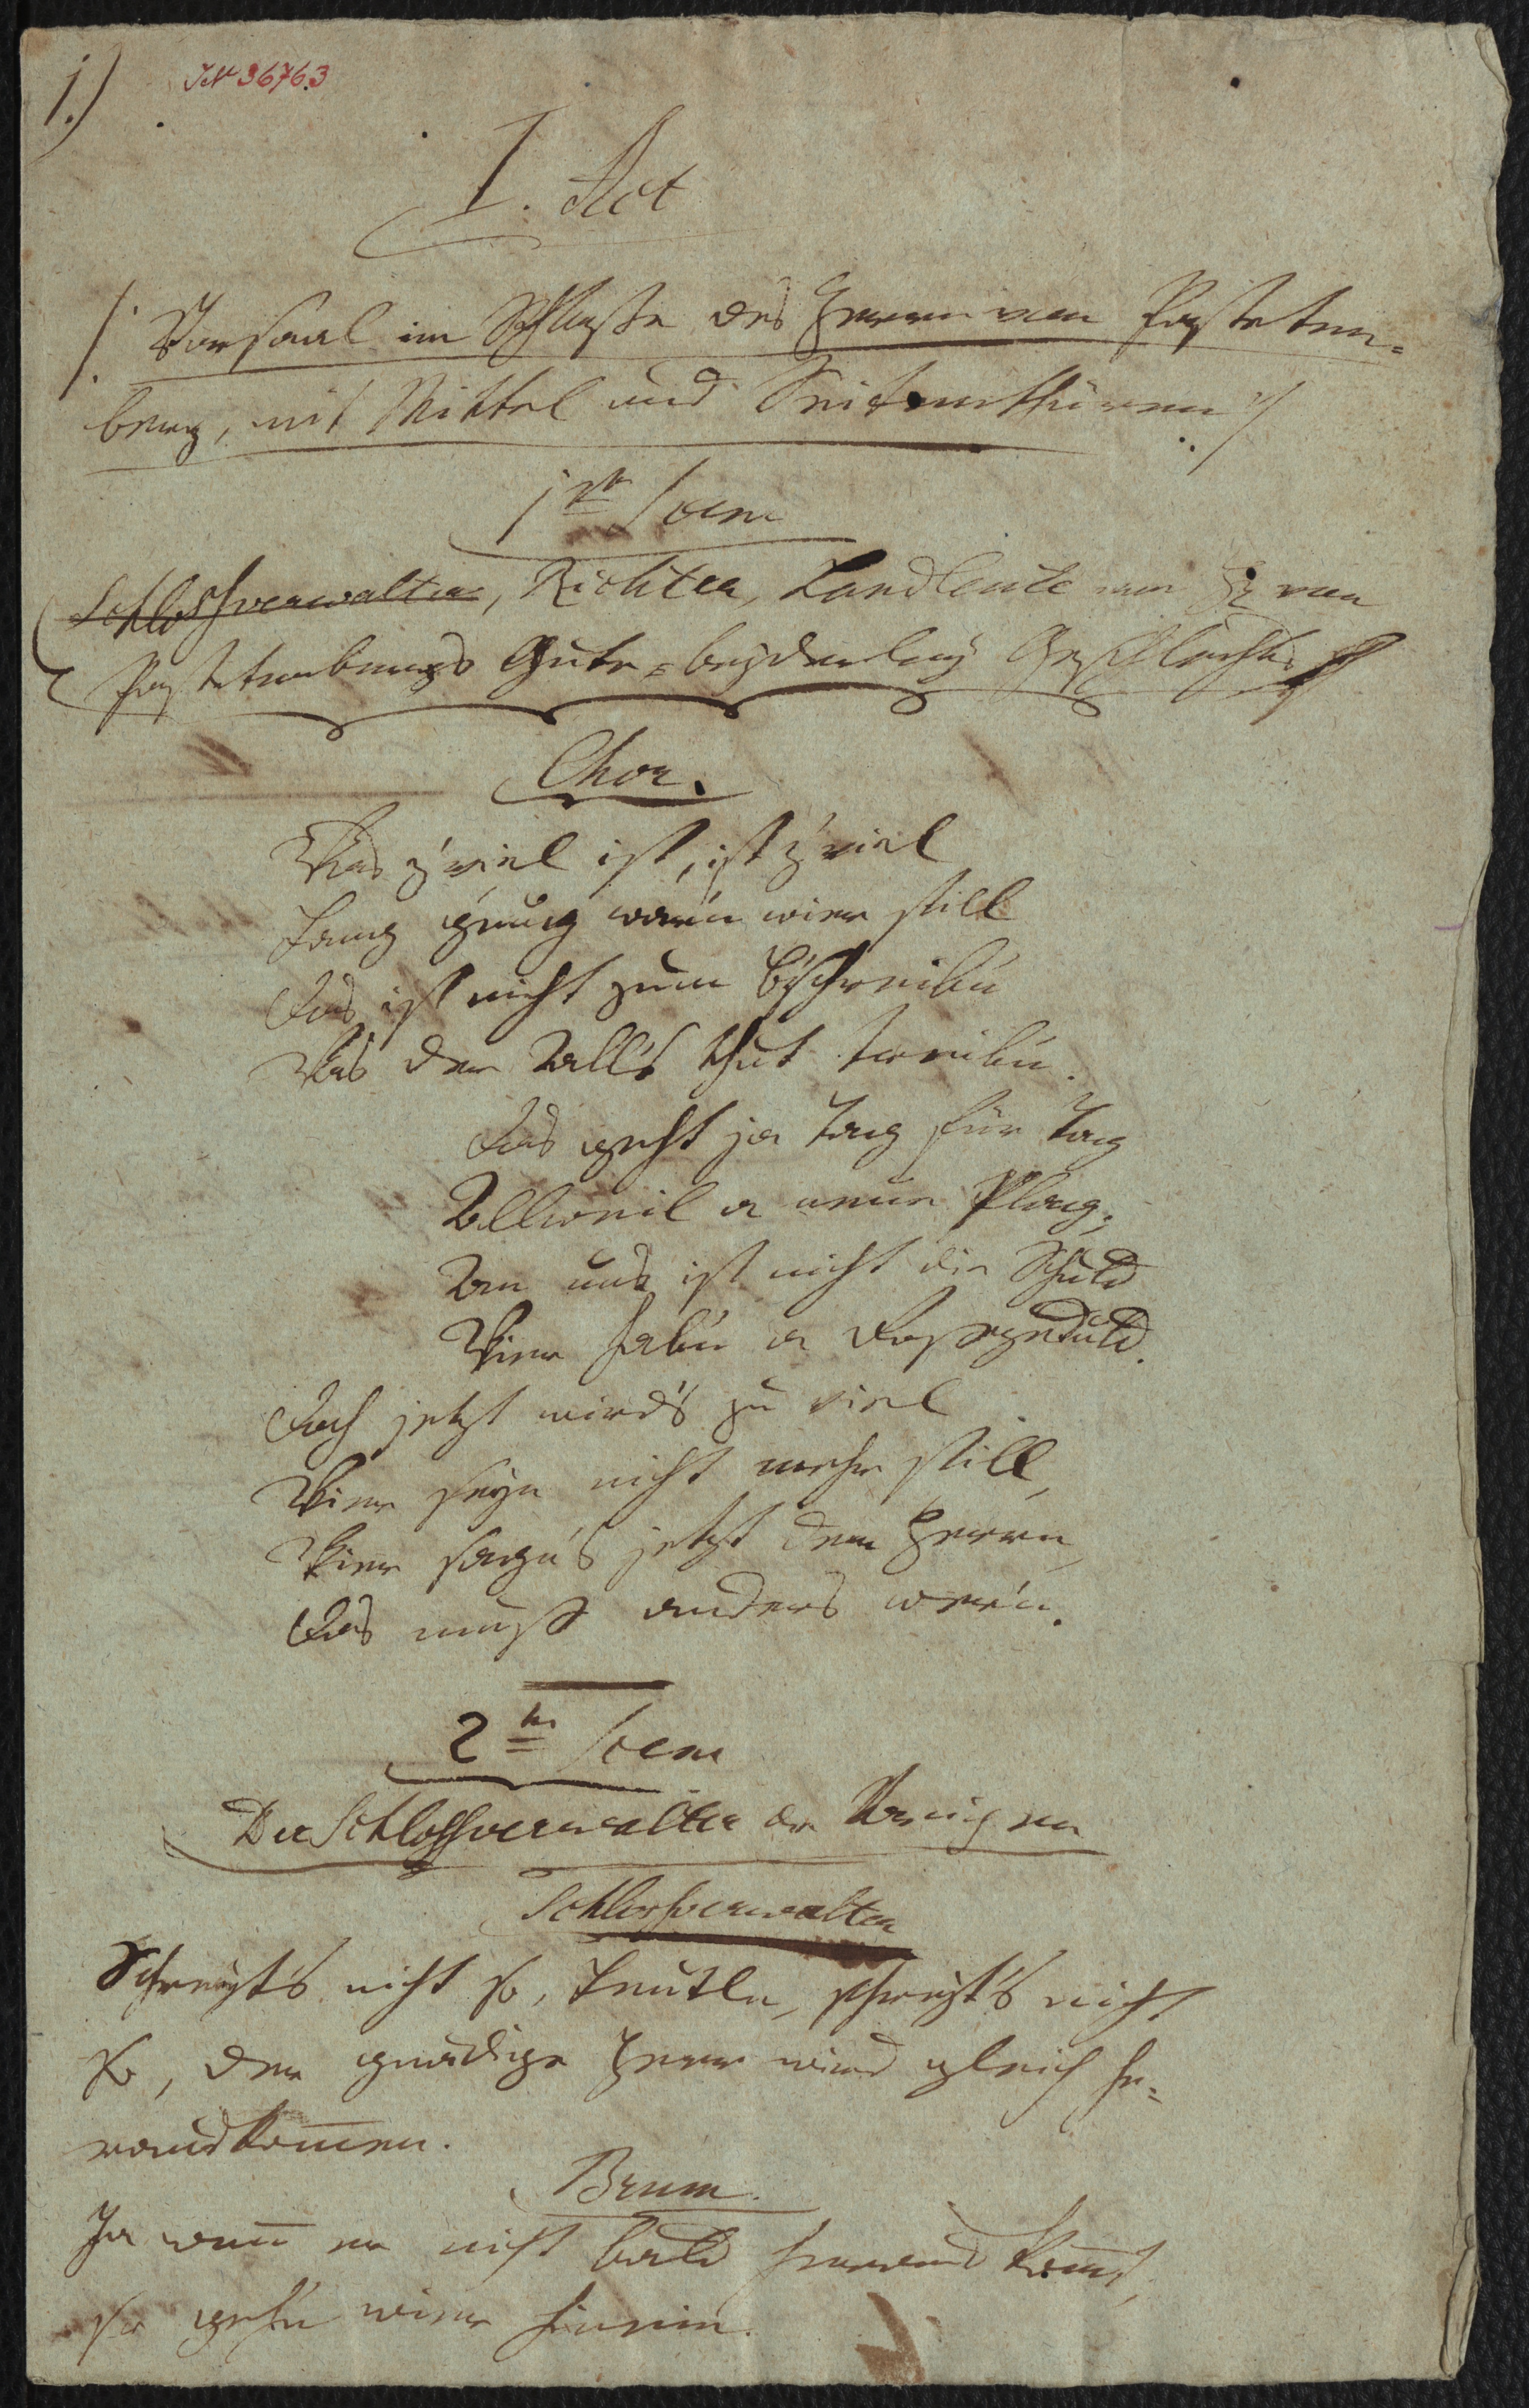 1.)
JN 36763
I. Act
/: Vorsaal im Schlosse des Herrn von Pasteten=
berg, mit Mittel und Seitenthüren :/
1te Scene
Schlossverwalter, Richter, Landleute von H: von
Pastetenbergs Gute = beyderley Geschlechts
Chor.
Was z'viel ist, ist z'viel
Lang g'nug war'n wier still
Das ist nicht zum B'schreib'n
Was der All's thut treib'n.
Das geht ja Tag für Tag
Allweil a neue Plag;
An uns ist nicht die Schuld
Wier hab'n a Rossgeduld.
Doch jetzt wird's zu viel
Wier seyn nicht mehr still,
Wier sagn's jetzt dem Herrn,
Das muß anders wer'n.
2te Scene
Der Schlossverwalter die Vorigen
Schlossverwalter
Schreyt's nicht so, Leutln, schreyt's nicht
so, der gnädige Herr wird gleich he=
rauskom̅en.
Brum.
Ja wen̅ er nicht bald heraus kom̅t,
so gehn wier hinein.